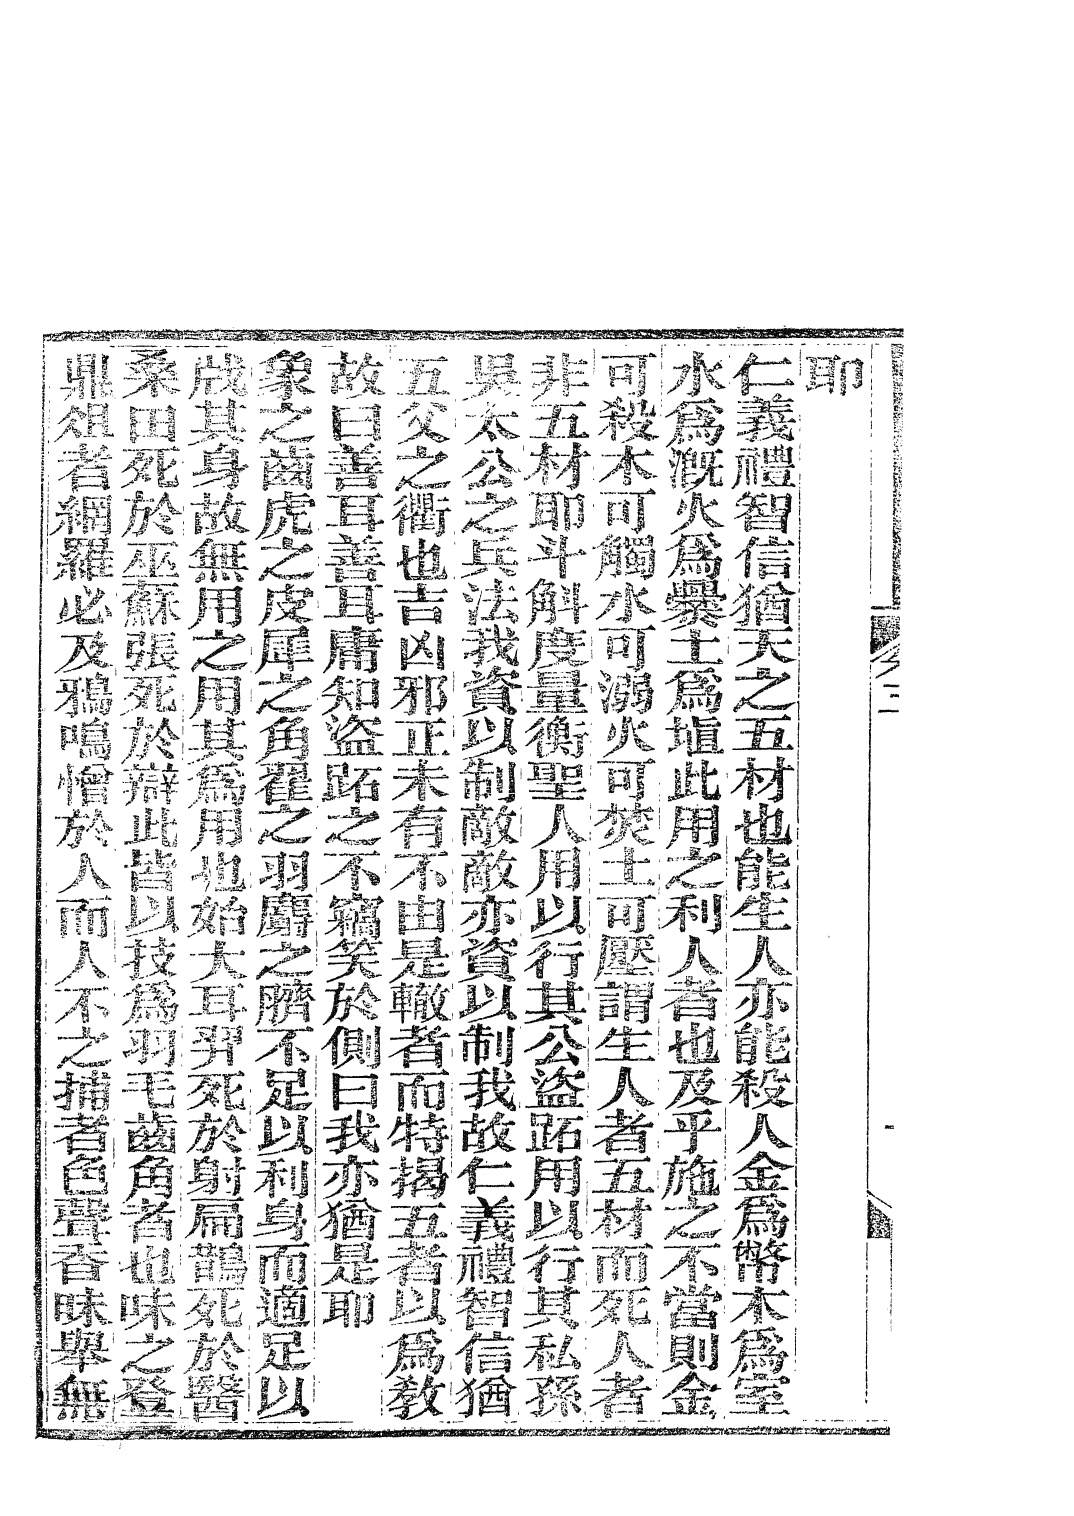 耶
仁義禮智信猶天之五材也能生人亦能殺人金爲幣木爲室
水爲漑火爲爨土爲埴此用之利人者也及乎施之不當則金
可殺木可觸水可溺火可焚土可壓謂生人者五材而死人者
非五材耶斗斛度量衡聖人用以行其公盜跖用以行其私孫
吳太公之兵法我資以制敵敵亦資以制我故仁義禮智信猶
五父之衢也吉凶邪正未有不由是轍者而特揭五者以爲敎
故曰善耳善耳庸知盜跖之不竊笑於側曰我亦猶是耶
象之齒虎之皮犀之角翟之羽麝之臍不足以利身而適足以
戕其身故無用之用其爲用也始大耳羿死於射扁鵲死於醫
桑田死於巫蘇張死於辯此皆以技爲羽毛齒角者也味之登
鼎俎者網羅必及鴉鳴憎於人而人不之捕者色聲香味舉無
二